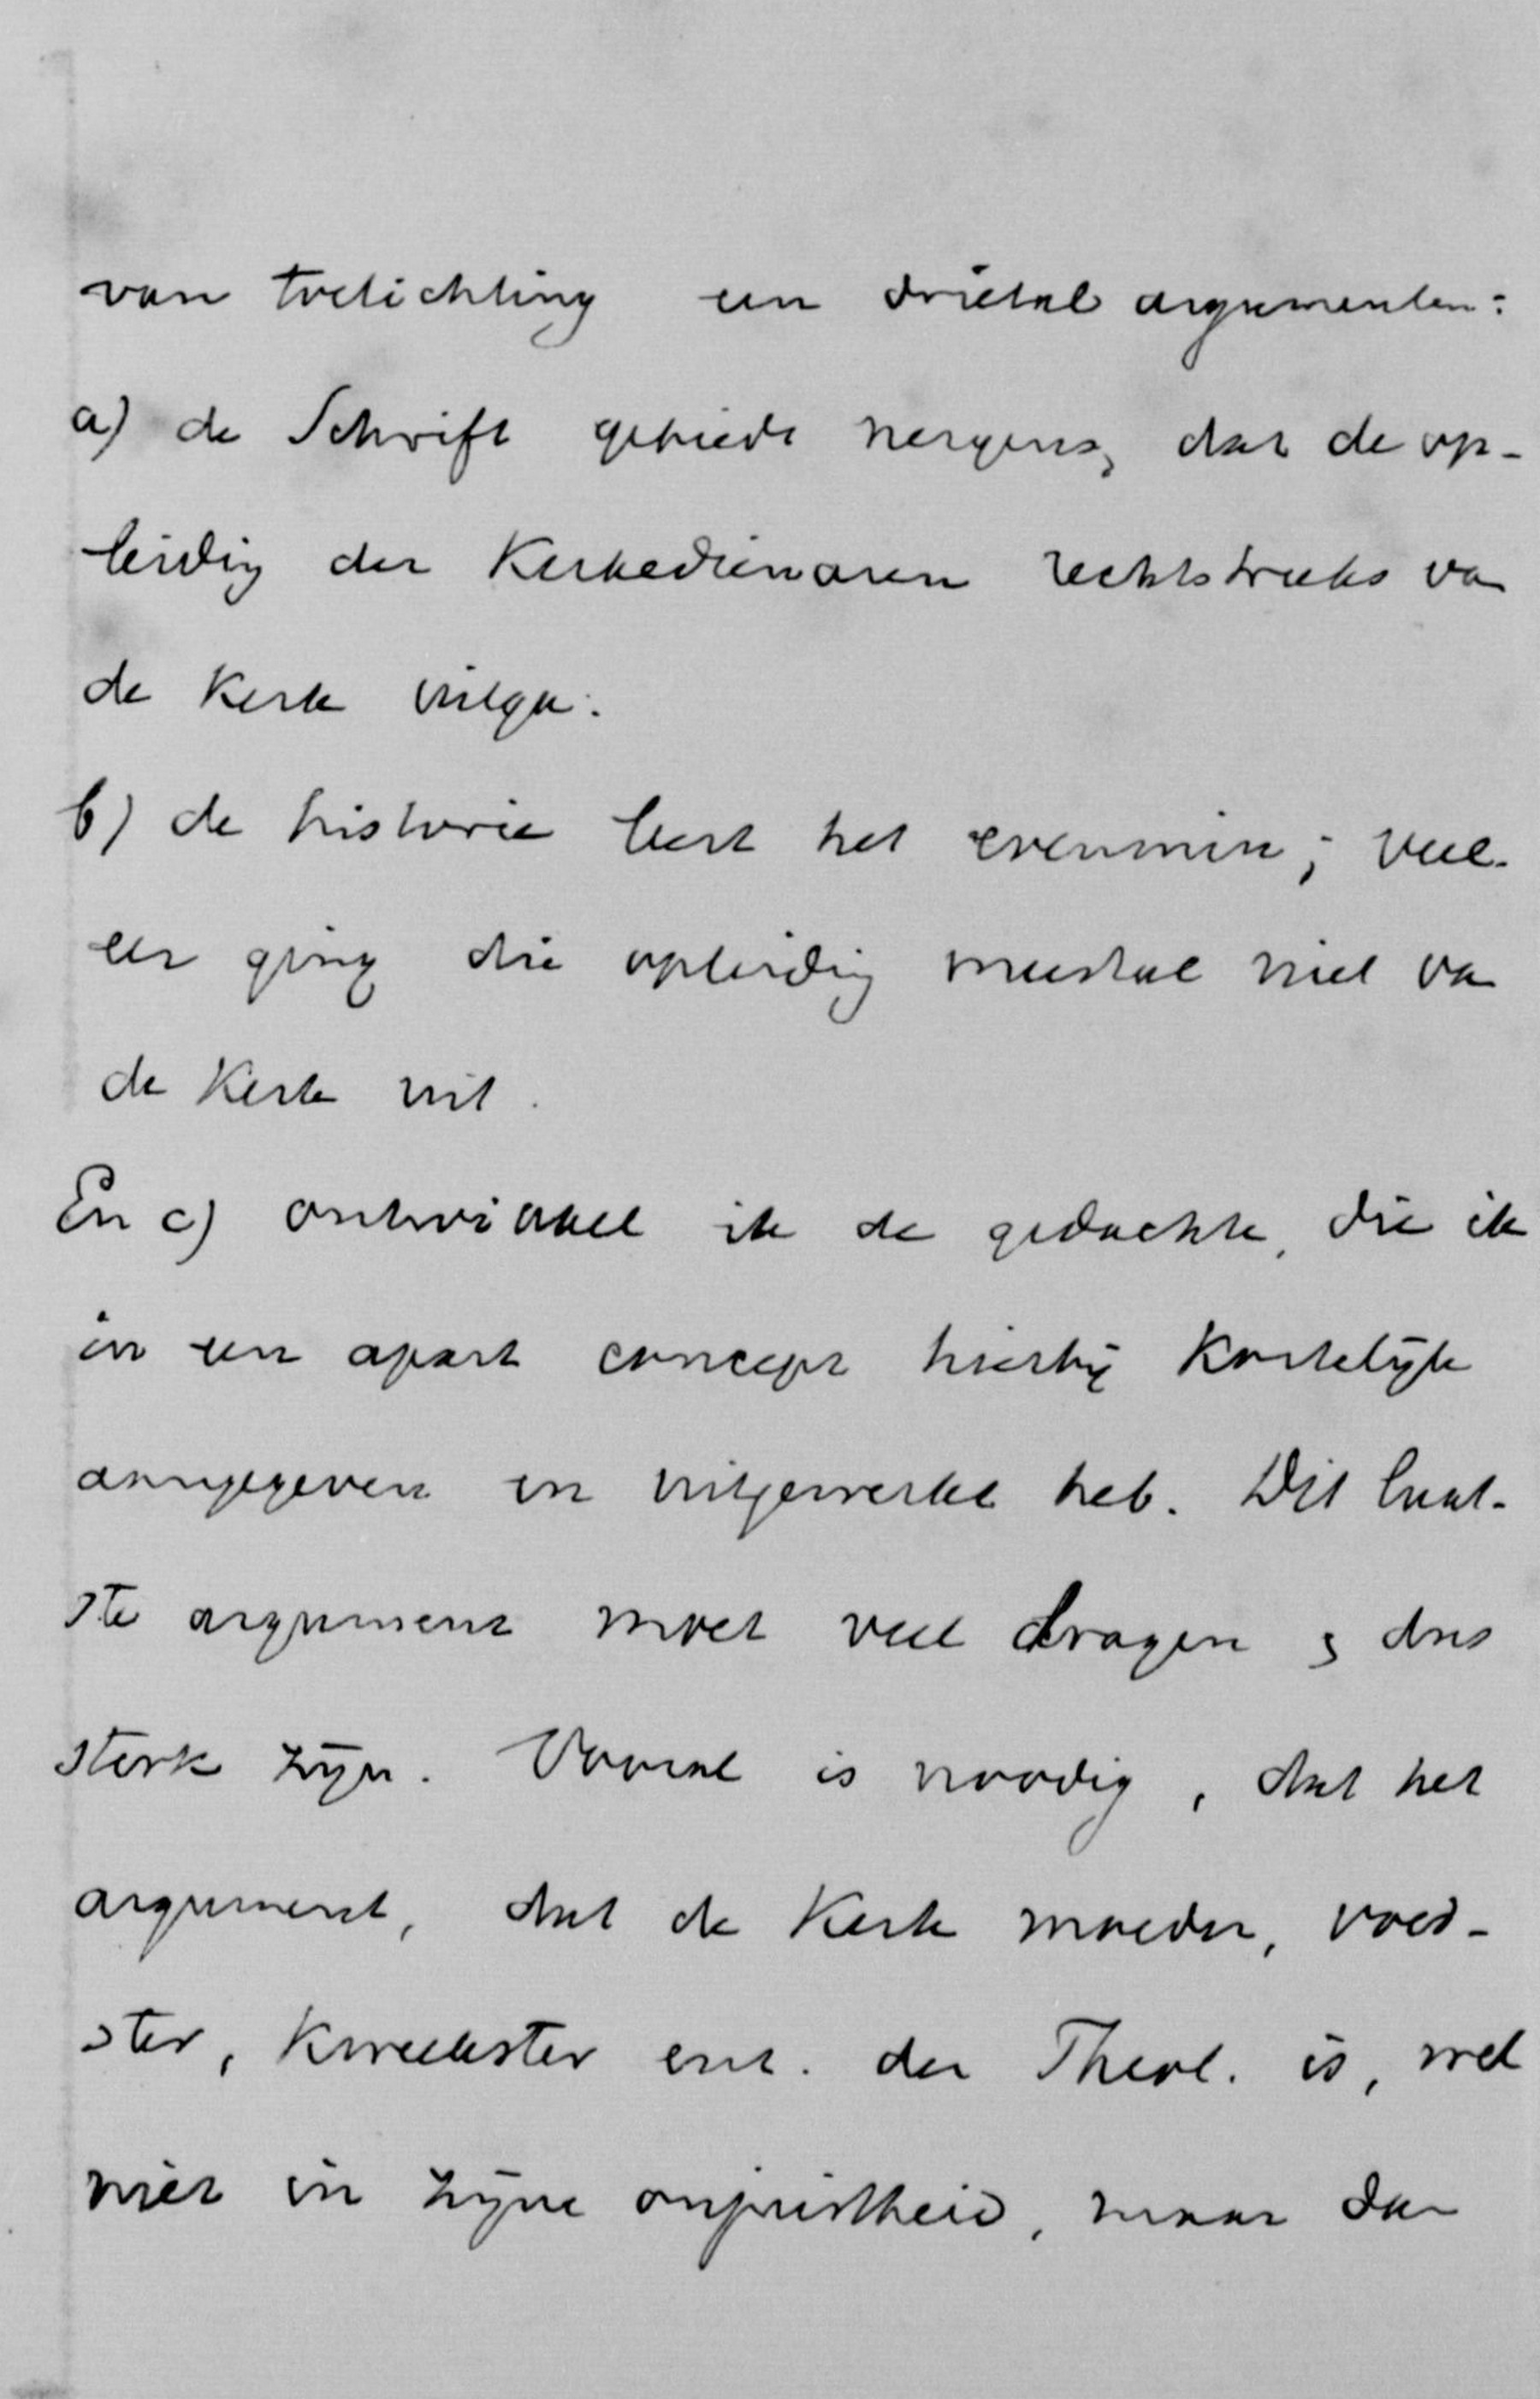 van toelichting een drietal argumenten:
a) de Schrift gebiedt nergens, dat de op-
leiding der Kerkedienaren rechtstreeks van
de Kerk uitga.
b) de historie leert het evenmin; veel-
eer ging die opleiding meestal niet van
de Kerk uit.
En c) ontwikkel ik de gedachte, die ik
in een apart concept hierbij kortelijk
aangegeven en uitgewerkt heb. Dit laat-
ste argument moet veel dragen & dus
sterk zijn. Vooral is noodig, dat het
argument, dat de Kerk moeder, voed-
ster, kweekster enz. der Theol. is, wel
niet in zijne onjuistheid, maar dan